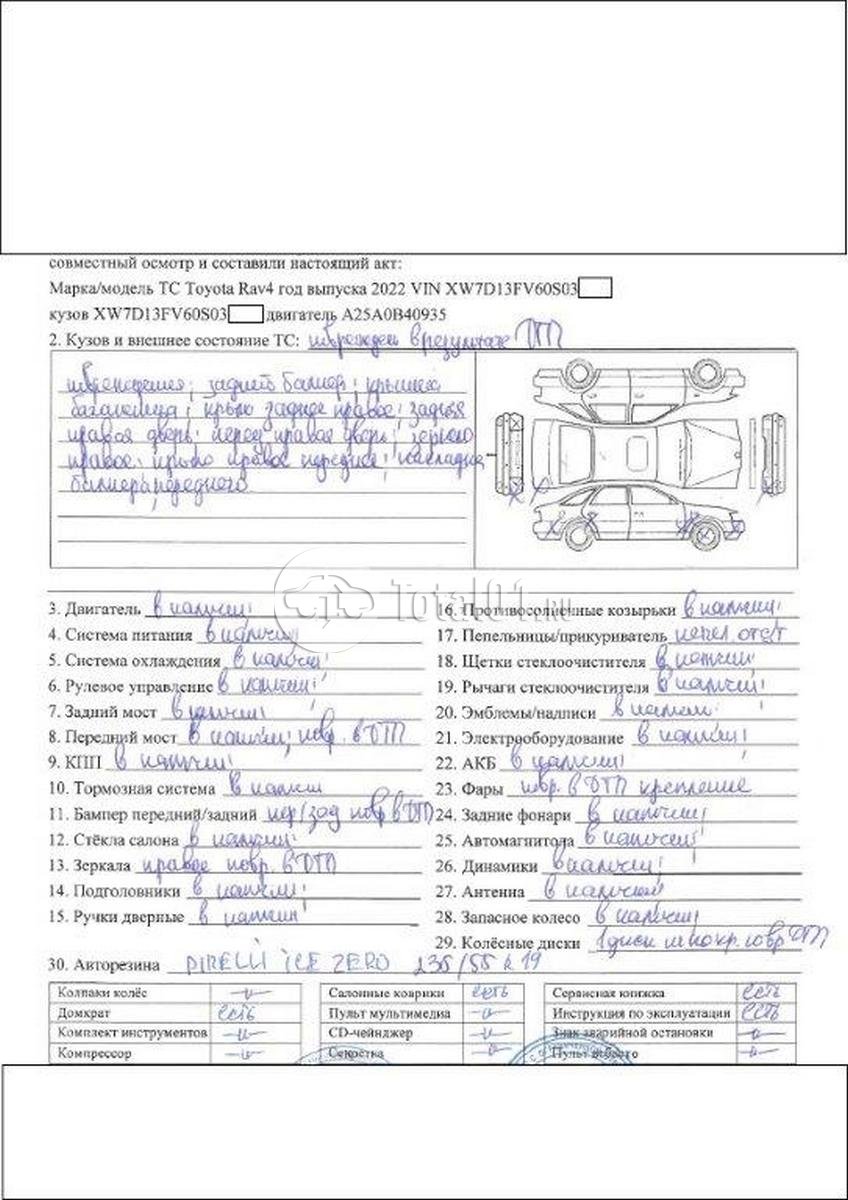 совместный осмотр и составили настоящий акт:
Марка/модель ТС Toyota Rav4 год выпуска 2022 VIN XW7D13FV60S03
кузов XW7D13FV60S03 двигатель A25A0B40935
2. Кузов и внешнее состояние ТС: поврежден в результате ДТП
повреждения; задний бампер; крышка
багажника; крыло заднее правое; задняя
правая дверь; перед правая дверь; зеркало
правое; крыло правое переднее; накладка
бампера переднего
Total01.RU
3. Двигатель в наличии
4. Система питания в наличии
5. Система охлаждения в наличии
6. Рулевое управление в наличии
7. Задний мост в наличии
8. Передний мост в наличии, повр. в ДТП
9. КПП в наличии
10. Тормозная система в наличии
11. Бампер передний/задний пер/зад повр в ДТП
12. Стёкла салона в наличии
13. Зеркала правое повр. в ДТП
14. Подголовники в наличии
15. Ручки дверные в наличии
16. Противосолнечные козырьки в наличии
17. Пепельницы/прикуриватель пепел. отс/т
18. Щетки стеклоочистителя в наличии
19. Рычаги стеклоочистителя в наличии
20. Эмблемы/надписи в наличии
21. Электрооборудование в наличии
22. АКБ в наличии
23. Фары повр. в ДТП крепление
24. Задние фонари в наличии
25. Автомагнитола в наличии
26. Динамики в наличии
27. Антенна в наличии
28. Запасное колесо в наличии
29. Колёсные диски 1 диск повр ДТП
30. Авторезина PIRELLI ICE ZERO 235/55 R 19
Колпаки колёс
Салонные коврики есть
Сервисная книжка есть
Домкрат есть
Пульт мультимедиа
Инструкция по эксплуатации есть
Комплект инструментов
CD-чейнджер
Знак аварийной остановки
Компрессор
Секретка